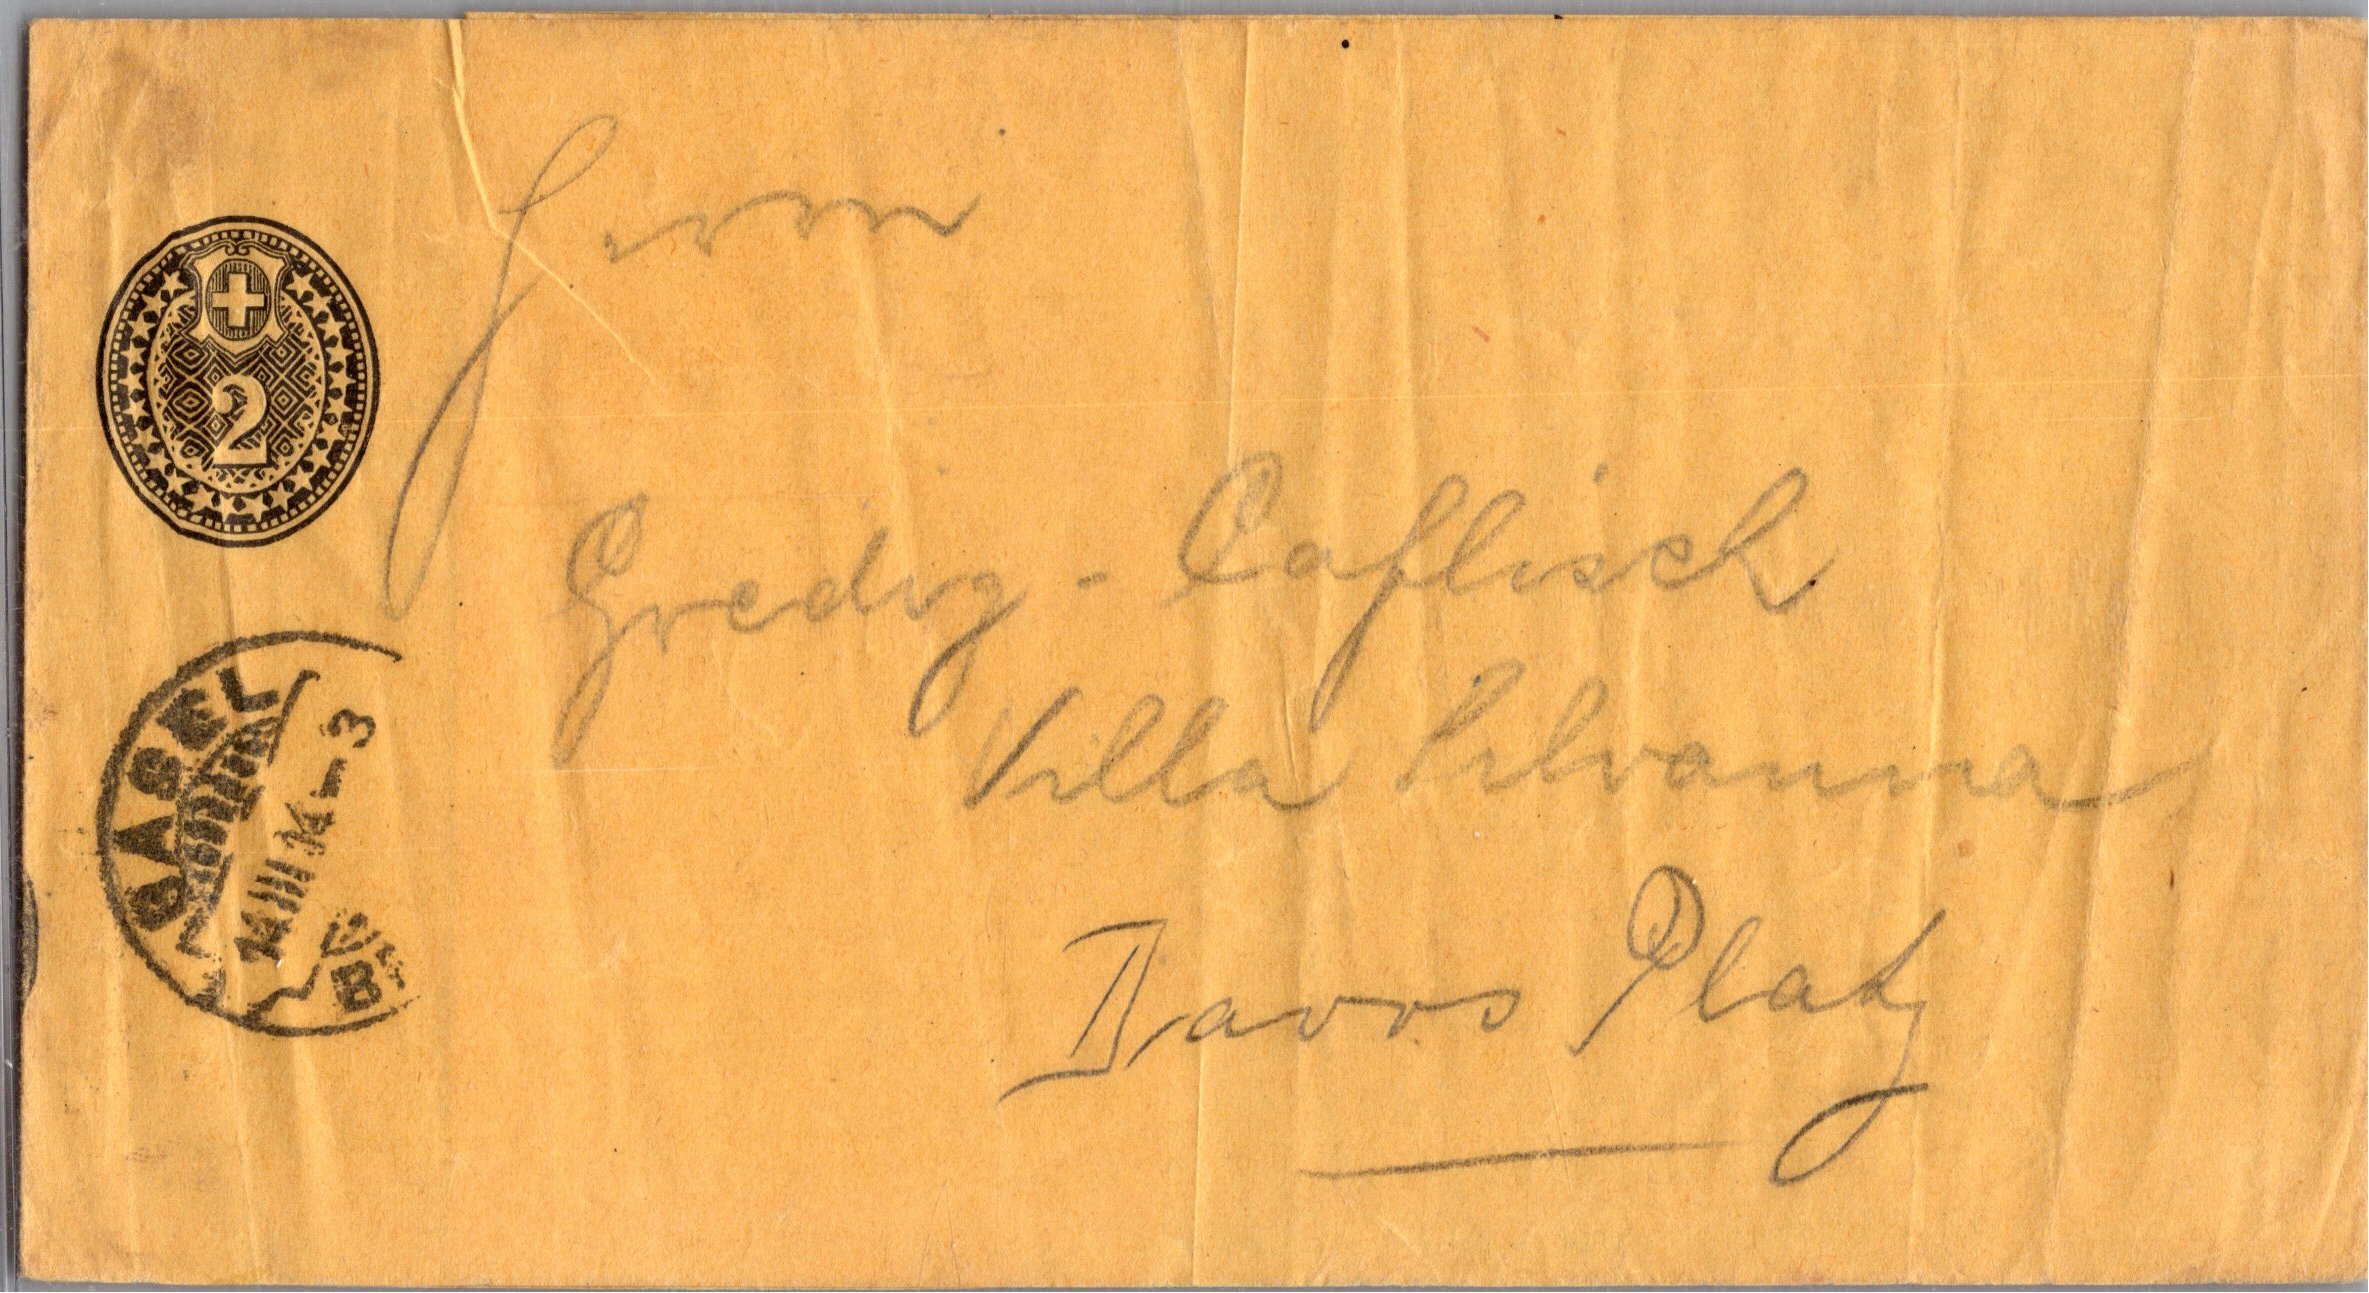 Herrn
2
Gredig - Caflisch
Villa Silvanna
BASEL
14 III 14 - 3
Davos Platz